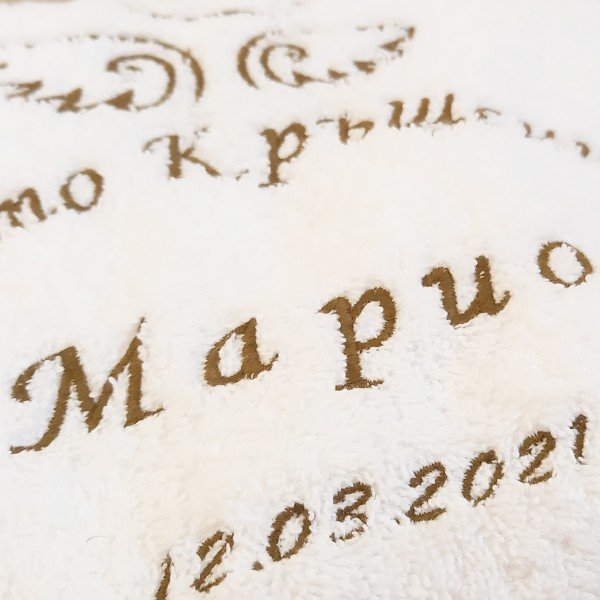 то Кръще
Марио
12.03.2021